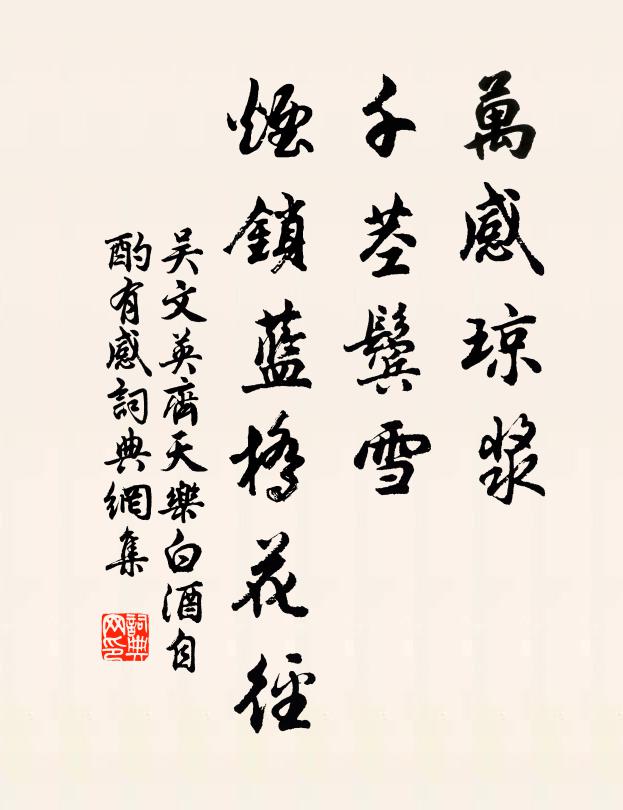 萬感瓊漿
千莖鬢雪
煙鎖藍橋花徑
吴文英齊天樂白酒自
酌有感詞典網集
詞典网印